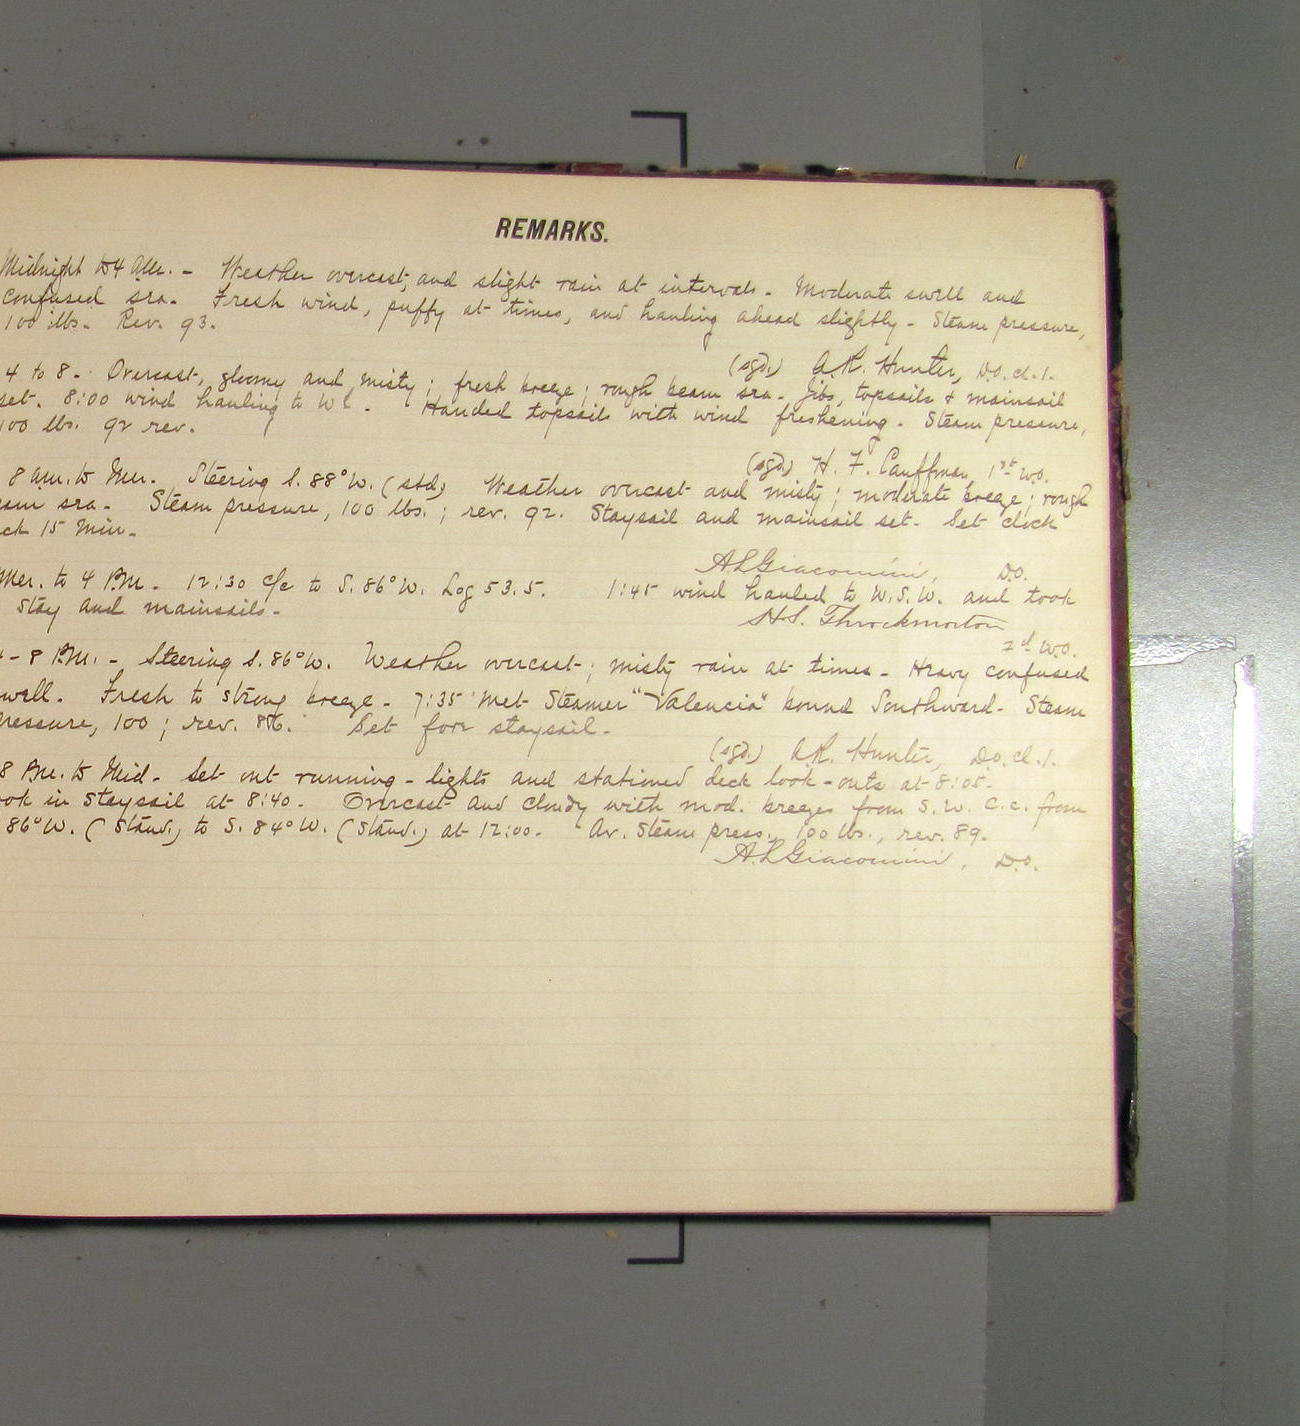 REMARKS.
Midnight to 4 a.m. - Weather overcast, and slight rain at intervals. Moderate swell and
confused sea. Fresh wind, puffy at times, and hauling ahead slightly. Steam pressure,
100 lbs. Rev. 93.
(sgd.) A.R. Hunter, D.O. cl. 1.
4 to 8. Overcast, gloomy and misty; fresh breeze; rough beam sea. Jibs, topsails & mainsail
set. 8:00 wind hauling to Wd. Handed topsails with wind freshening. Steam pressure,
100 lbs. 92 rev.
(sgd.) H. F. Cauffman, 1st W.O.
8 a.m. to Mer. Steering S. 88° W. (std) Weather overcast and misty; moderate breeze; rough
eam sea. Steam pressure, 100 lbs.; rev. 92. Staysail and mainsail set. Set clock
ck 15 Min.
A L Giacomini, D.O.
Mer. to 4 P.M. 12:30 c/c to S. 86° W. Log 53.5. 1:45 wind hauled to W.S.W. and took
stay and mainsails.
H.S. Throckmorton
2d W.O.
- 8 P.M. - Steering S. 86° W. Weather overcast; misty rain at times. Heavy confused
well. Fresh to strong breeze. 7:35 Met Steamer "Valencia" bound Southward. Steam
ressure, 100; rev. 86. Set fore staysail.
(sgd.) A.R. Hunter, D.O. cl. 1.
8 P.M. to Mid. Set out running-lights and stationed deck look-outs at 8:05.
ook in staysail at 8:40. Overcast and cloudy with mod. breezes from S.W. C.c. from
86° W. (Stand.) to S. 84° W. (Stand.) at 12:00. Av. Steam press., 100 lbs., rev. 89.
A. L Giacomini, D.O.